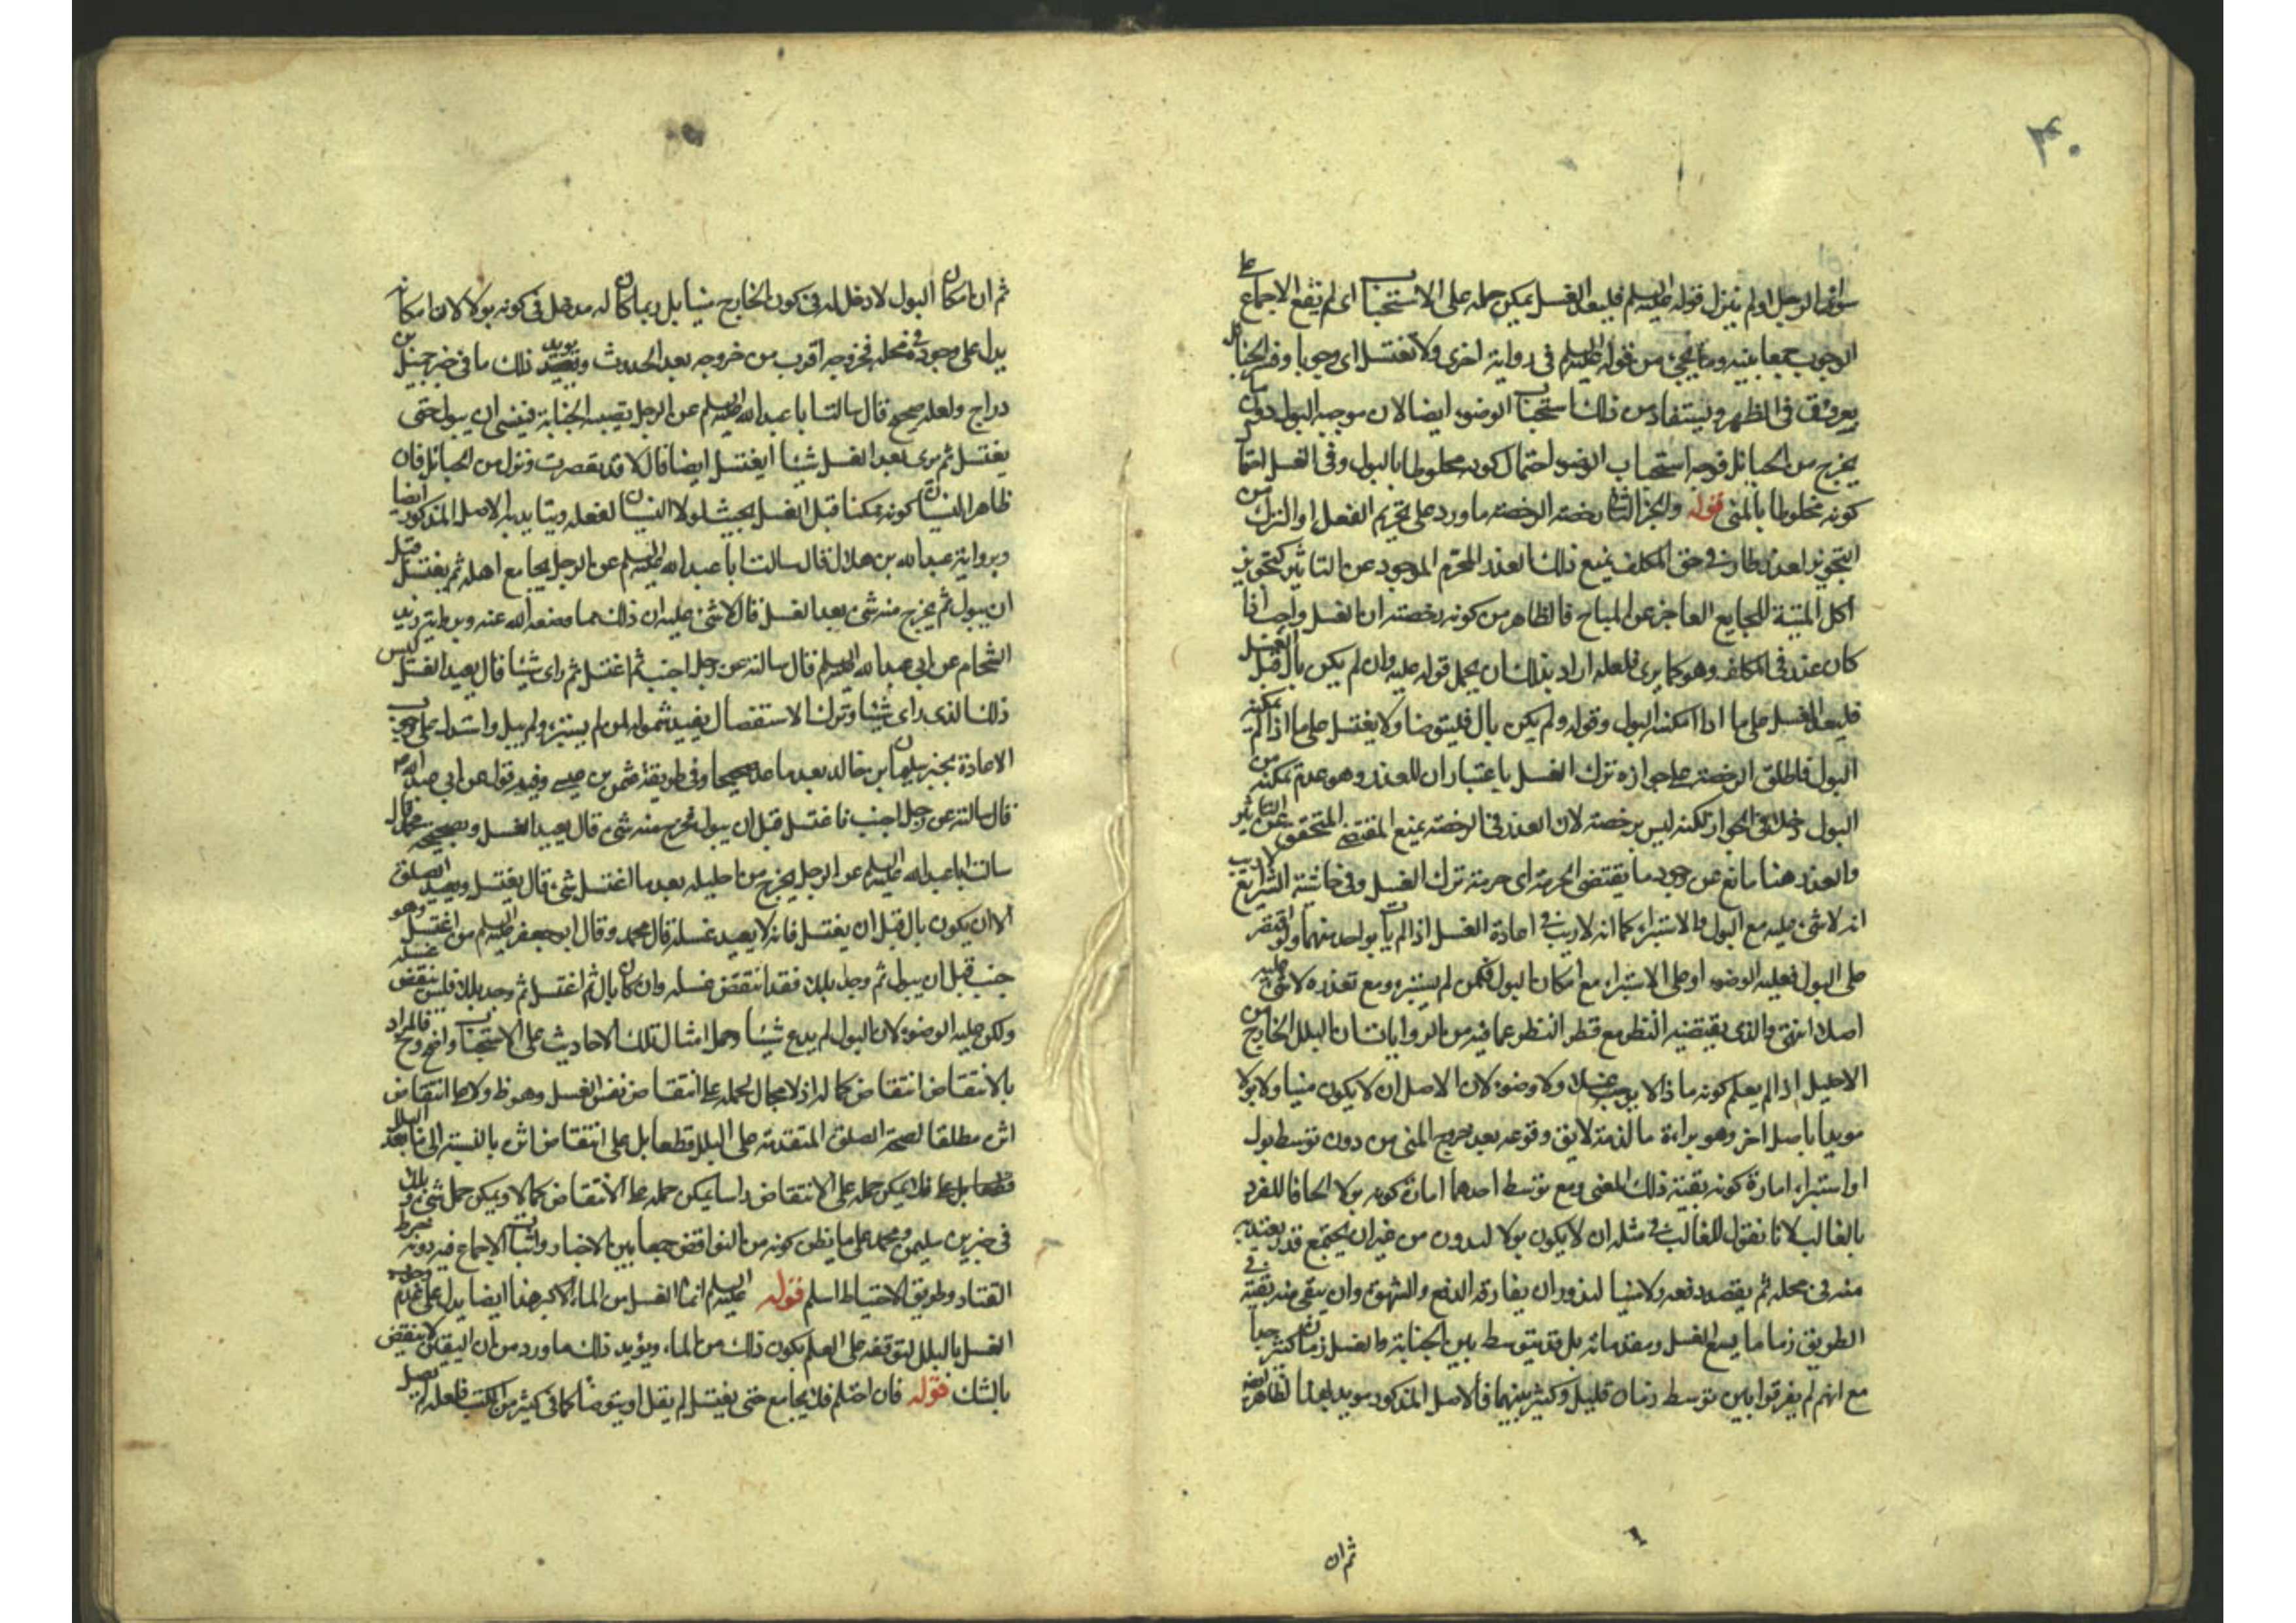 ٤٠
سواقي الرجل اولم ينزل قوله عليه السلم فليعد الغسل يمكن حمله على الاستحباب اى لم يقع الاجماع على
الوجوب جمعا بينه وما يجئ من قوله عليه السلم فى رواية اخرى ولا تغتسل اى وجوبا وفسر الحبائل
بعروق فى الظهر ويستفاد من ذلك استحباب الوضوء ايضا لان موجبه البول دون ما
يخرج من الحبائل فوجه استحباب الوضوء احتمال كونه مخلوطا بالبول وفى الغسل احتمال
كونه مخلوطا بالمنى قوله والخبر الثانى رخصة الرخصة ما ورد على تحريم الفعل او الترك من
التجويز لعذر طار فى حق المكلف يمنع ذلك العذر المحرم الموجود عن التاثير كتجويز
اكل الميتة للجايع العاجز عن المباح فالظاهر من كونه رخصة ان الغسل واجب اذا
كان عذر فى المكلف وهو كما يرى فلعله اراد بذلك ان يحمل قوله عليه وان لم يكن بال قبل الغسل
فليعد الغسل على ما اذا امكنه البول وقوله ولم يكن بال فليتوضا ولا يغتسل على ما اذا لم يمكنه
البول فاطلق الرخصة على جوازه ترك الغسل باعتبار ان للعذر وهو عدم تمكنه من
البول دخلا فى الجواز لكنه ليس برخصة لان العذر فى الرخصة يمنع المقتضى المتحقق عن التاثير
والعذر هنا مانع عن وجود ما يقتضى الحرمة اى حرمة ترك الغسل وفى حاشية الشرايع
انه لا شئ عليه مع البول والاستبراء كما انه لا ريب فى اعادة الغسل اذا لم يات بواحد منهما ولو اقتصر
على البول فعليه الوضوء او على الاستبراء مع امكان البول فكمن لم يستبرء ومع تعذره لا شئ عليه
اصلا انتهى والذى يقتضيه النظر مع قطر النظر عما فيه من الروايات ان البلل الخارج من
الاحليل اذا لم يعلم كونه ماذا لا يوجب غسلا ولا وضوء لان الاصل ان لا يكون منيا ولا بولا
مويدا باصل اخر وهو براءة ما الذمة لا يق وقوعه بعد خروج المنى من دون توسط بول
او استبراء امارة كونه بقية ذلك المعنى ومع توسط احدهما امارة كونه بولا الحاقا للفرد
بالغالب لانا نقول للغالب فى مثله ان لا يكون بولا لبدون من غير ان يجتمع قدر يعتد به
منه فى محله ثم يقصد دفعه ولا منيا لندور ان يفارقه الدفع والشهوة وان يبقى منه بقية فى
الطويق زمانا ما يسع الغسل ومقدماته بل قد يتوسط بين الجنابة والغسل زمان كثير جدا
مع انهم لم يفرقوا بين توسط زمان قليل وكثير بينهما فالاصل المذكور مويد لهذا الظاهر ايضا
ثم ان
ثم ان امكان البول لا دخل له فى كون الخارج منيا بل ربما كان له مدخل فى كونه بولا لان امكانه
يدل على وجوده فى محله فخروجه اقرب من خروجه بعد الحدوث ويويد ذلك ما فى خبر جميل بن
دراج ولعله صحيح قال سالت ابا عبد الله عليه السلم عن الرجل يصيبه الجنابة فينسى ان يبول حتى
يغتسل ثم يرى بعد الغسل شيئا ايغتسل ايضا قال لا قد تعصرت ونزل من الحبائل فان
ظاهر النسيان كونه متمكنا قبل الغسل بحيث لولا النسيان لفعله ويتايد به الاصل المذكور ايضا
وبرواية عبد الله بن هلال قال سالت ابا عبد الله عليه السلم عن الرجل يجامع اهله ثم يغتسل قبل
ان يبول ثم يخرج منه شئ بعد الغسل قال لا شئ عليه ان ذلك مما وضعه الله عنه وبرواية زيد
الشحام عن ابى عبد الله عليه السلم قال سالته عن رجل اجنب ثم اغتسل ثم راى شيئا قال يعيد الغسل ليس
ذلك الذى راى شيئا وترك الاستفصال يفيد شموله لمن لم يستبرء ولم يبل واستدل على وجوب
الاعادة بخبر سليمان بن خالد بعد ما عد صحيحا وفى طريقه عثمن بن عيسى وفيه قول عن ابى عبد الله ع
قال سالته عن رجل اجنب فاغتسل قبل ان يبول فخرج منه شئ قال يعيد الغسل وبصحيحة محمد قال
سالت ابا عبد الله عليه السلم عن الرجل يخرج من احليله بعد ما اغتسل شئ قال يغتسل ويعيد الصلوة
الا ان يكون بال قبل ان يغتسل فانه لا يعيد غسله قال محمد وقال ابو جعفر عليه السلم من اغتسل وهو
جنب قبل ان يبول ثم وجد بللا فقد انتقض غسله وان كان بال ثم اغتسل ثم وجد بللا فليس ينقض غسله
ولكن عليه الوضوء لان البول لم يدع شيئا وحمل امثال تلك الاحاديث على الاستحباب واضح وح فالمراد
بالانتقاض انتقاض كماله اذ لا مجال لحمله على انتقاض نفس الغسل وهو ظ ولا على انتقاض
اثره مطلقا لصحة الصلوة المتقدمة على البلل قطعا بل على انتقاض اثره بالنسبة الى ما بعد البلل
فكما يمكن حمله على الانتقاض راسا يمكن حمله على الانتقاض كمالا ويمكن حمل شئ وبللا
فى خبرين سليمن ومحمد على ما يظن كونه من النواقض جمعا بين الاخبار واثبات الاجماع فيه دونه خرط
القتاد وطريق الاحتياط اسلم قوله عليه السلم انما الغسل من الماء الاكبر هذا ايضا يدل على عدم وجوب
الغسل بالبلل لتوقفه على العلم بكون ذلك من الماء ويؤيد ذلك ما ورد من ان اليقين لا ينقض
بالشك قوله فان احتلم فلا يجامع حتى يغتسل لم يقل او يتوضا كما فى كثير من الكتب فلعله لم يصل